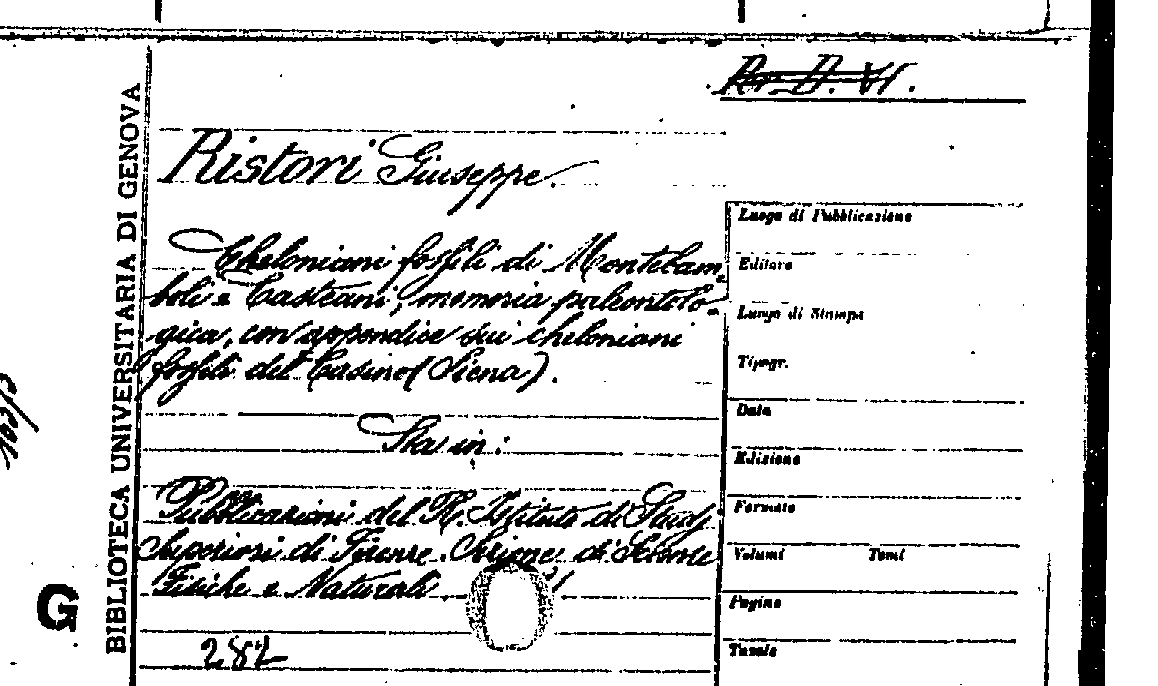 Rr. D. VI.
Ristori Giuseppe.
Cheloniani fossili di Montebam=
boli e Casteani, memoria paleontolo=
gica, con appendice sui cheloniani
fossili del Casino (Siena).
Sta in:
Pubblicazioni del R. Istituto di Studj
Superiori di Firenze. Sezione di Scienze
Fisiche e Naturali
282
BIBLIOTECA UNIVERSITARIA DI GENOVA
G
Luogo di Pubblicazione
Editore
Luogo di Stampa
Tipogr.
Data
Edizione
Formato
Volumi Tomi
Pagine
Tavole